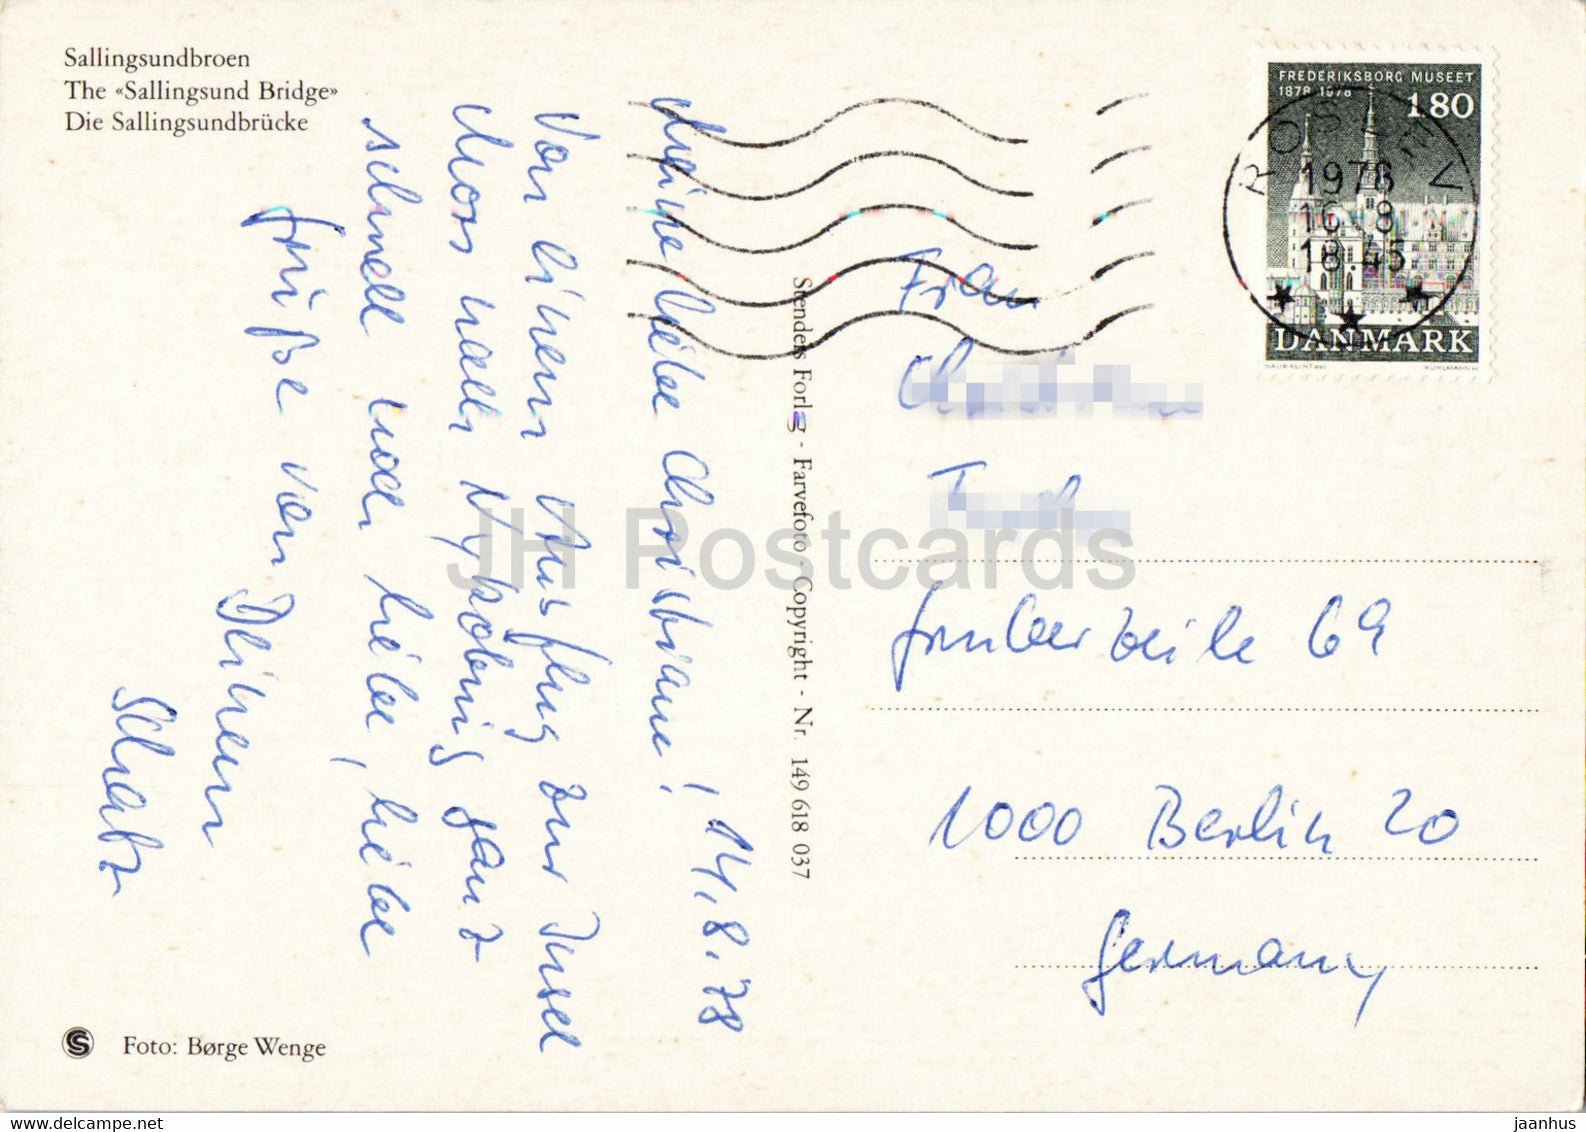 Sallingsundbroen
The «Sallingsund Bridge»
Die Sallingsundbrücke
FREDERIKSBORG MUSEET
1878 1978
180
DANMARK
NAUR KLINT del.
KÜHLMANN sc.
1978
16 8
18 45
14.8.78
Meine liebe Christiane!
Von einem Ausflug zur Insel
Mors nach Nyköbing ganz
schnell noch liebe, liebe
Grüße von Deinem
Schatz
Stenders Forlag - Farvefoto - Copyright - Nr. 149 618 037
Frau
Gruberzeile 69
1000 Berlin 20
Germany
Foto: Børge Wenge
JH Postcards
delcampe.net
jaanhus